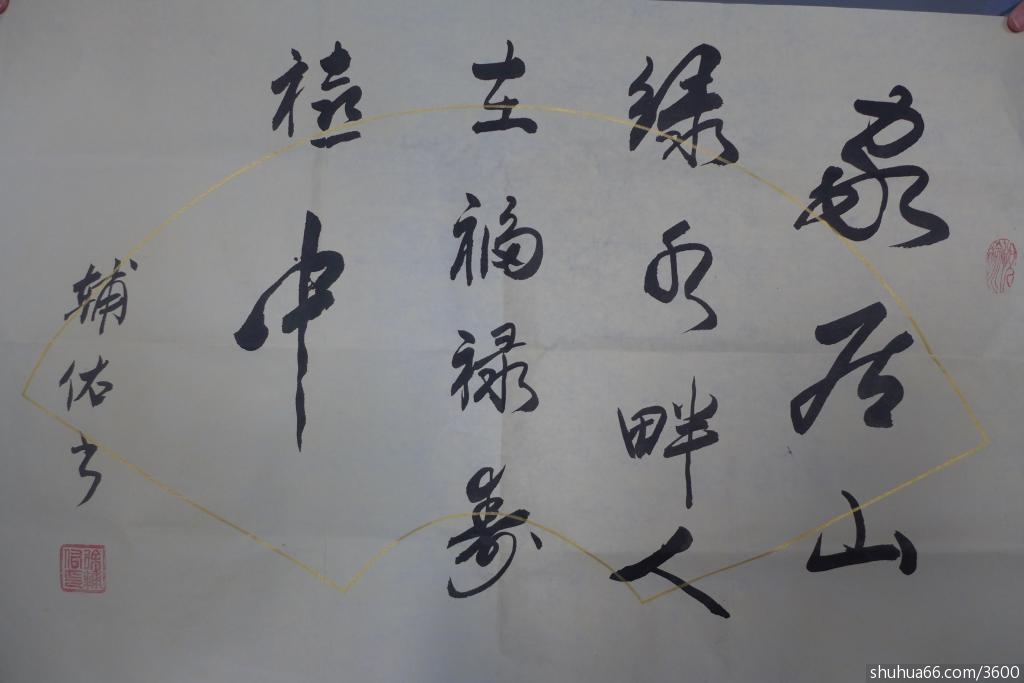 家居山
绿水畔人
在福禄寿
禧中
辅佑书
shuhua66.com/3600